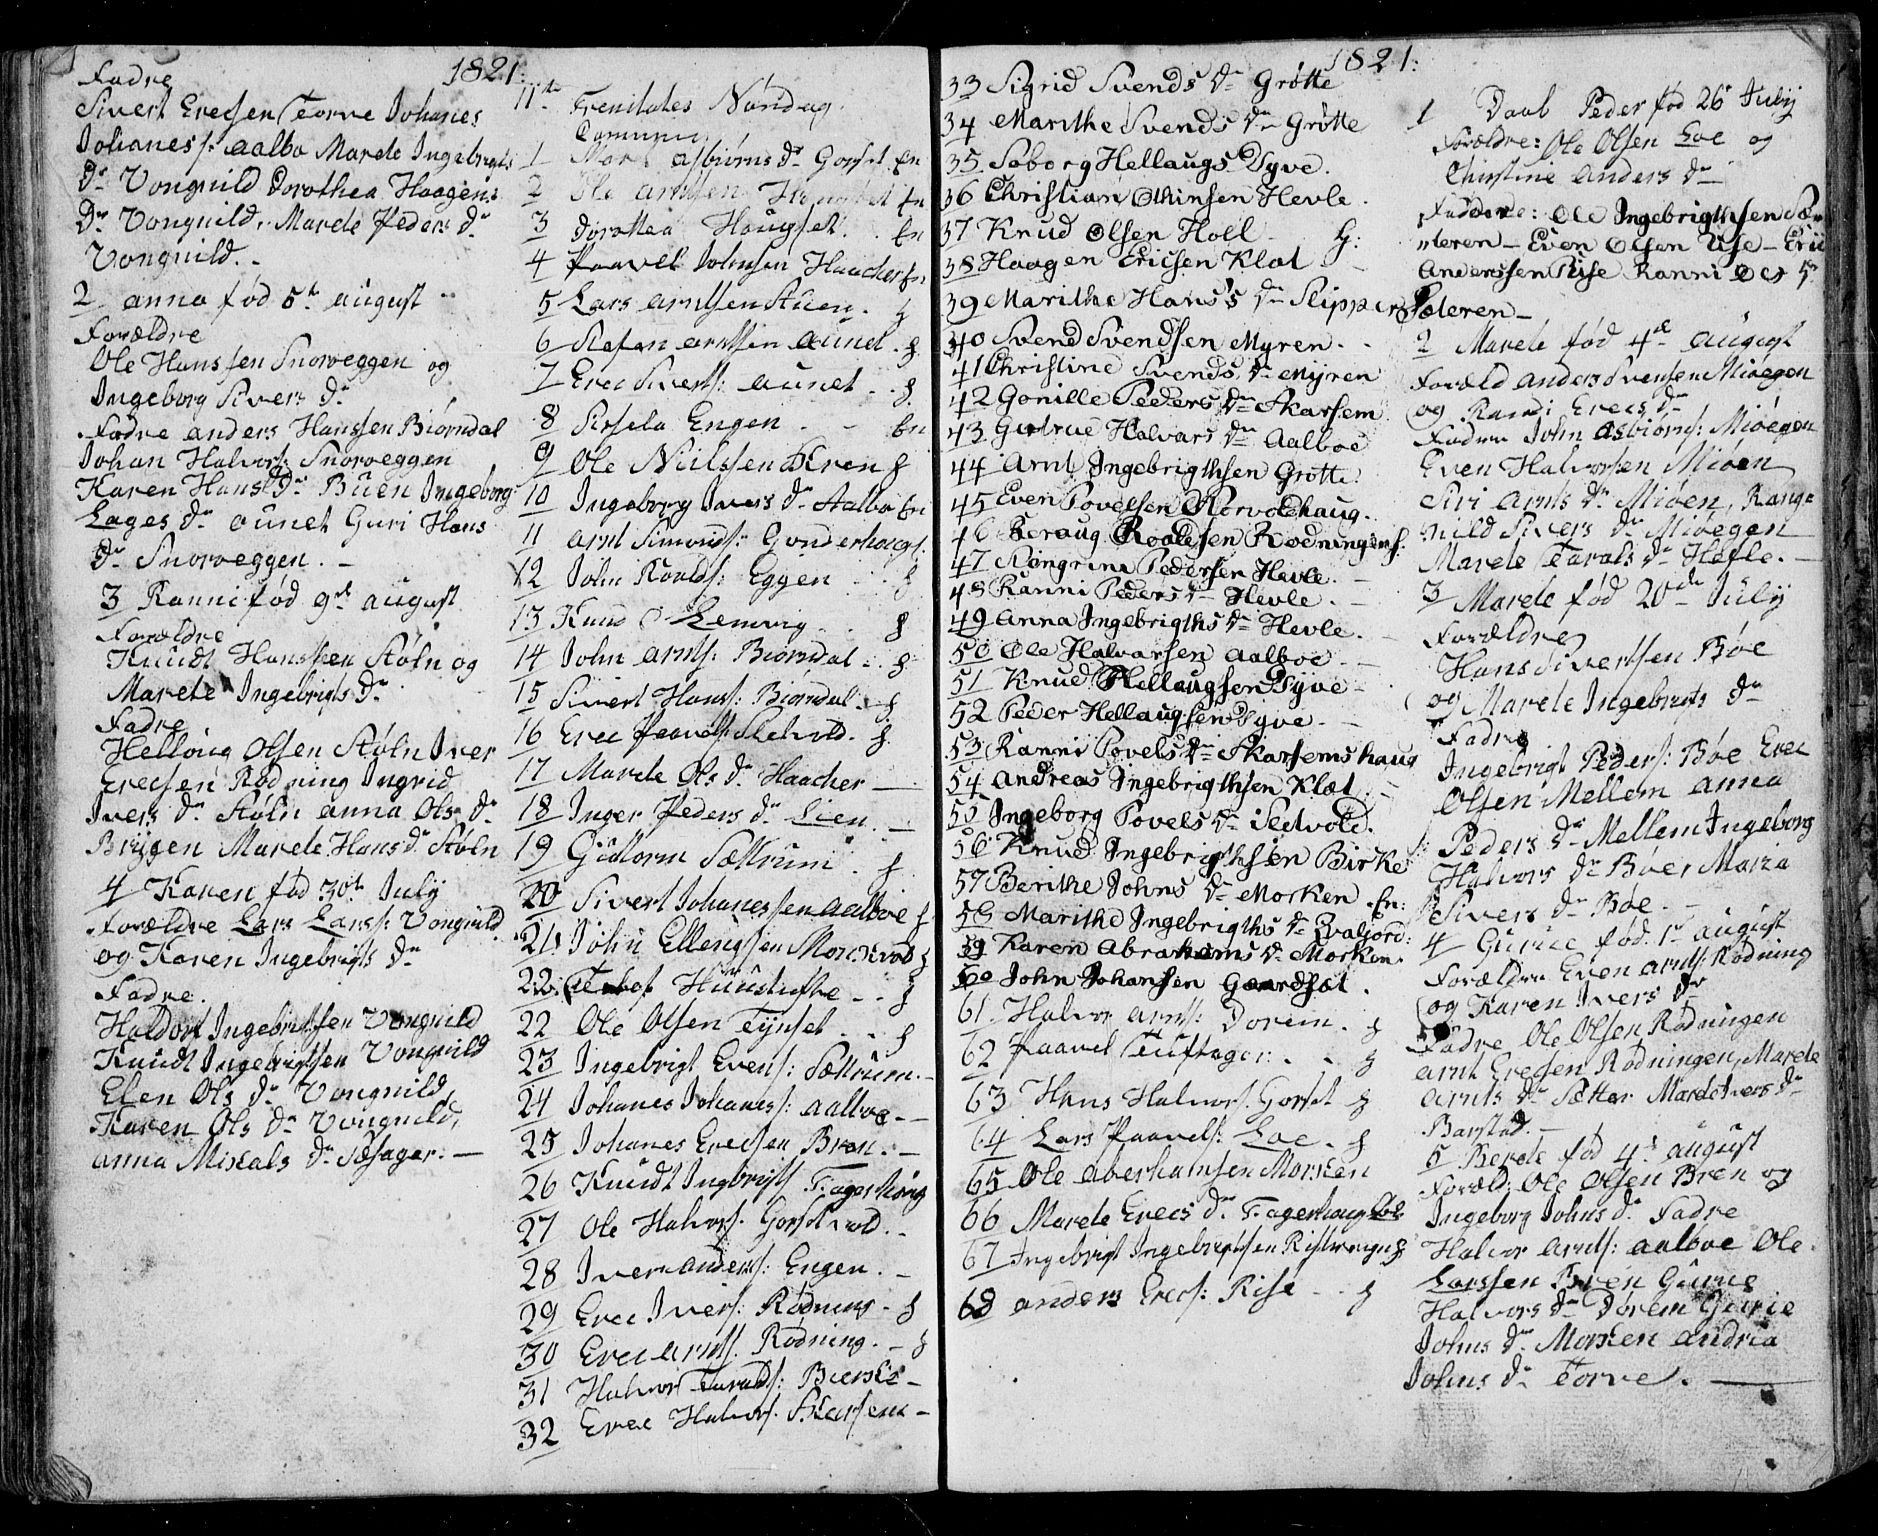 1821:
Fadre
Sivert Erecsen Torve Johanes
Johaness: Aalbo Marete Ingebrigts
Dr Vongnild Dorothea Haagens
Dr Vongnild, Marete Peders Dr
Vongnild.
2 Anna fød 5te August
Forældre
Ole Hanssen Snoreggen og
Ingeborg Sivers Dr
Fadre Anders Hanssen Biørndal
Johan Halvors: Snoreggen
Karen Hans Dr Buen Ingeborg
Lages Dr Aunet Guri Hans
Dr Snoreggen. -
3 Ranni fød 9de August
Forældre
Knudt Hanssen Støln og
Marete Ingebrigts Dr
Fadre
Helloug Olsen Støln Iver
Erecsen Rødning Ingrid
Ivers Dr Støln Anna Ols Dr
Bryggen Marete Hans Dr Støln
4 Karen fød 30te July
Forældre Lars Larss: Vongnild
og Karen Ingebrigts Dr
Fadre.
Haldort Ingebrigtsen Vongnild
Knudt Ingebrigtsen Vongnild
Elen Ols Dr Vongnild,
Karen Ols Dr Vongnild,
Anna Mikals Dr Sæsager. -
11te Trenitates Søndag.
1 Asbiørns Dr Gorset. En
2 Ole Arntsen En
3 Dorothea Haugset. En
4 Paavel Johnsen Haacher En
5 Lars Arntsen Stuen. H
6 Stefen Arntsen Aunet. H
7 Erec Siverts: Aunet. H
8 Sirsela Engen - - En
9 Ole Nielssen Kren H
10 Ingeborg Ivers Dr Aalbo En
11 Arnt Simonds: Gunderhaug H.
12 John Roalds: Eggen . . H
13 Knud O Lemvig . . H
14 John Arnts: Biørndal . H
15 Sivert Hans: Biørndal . H
16 Erec Paavels: Sletvold. H
17 Marete Ols Dr Haacher -
18 Inger Peders Dr Lien. -
19 Guttorm Sættrum . H
20 Sivert Johanessen Aalboe H
21 John Ellengsen H
22 Huustufte . . H
22 Ole Olsen Tynset . . H
23 Ingebrigt Evens: Sættrum. -
24 Johanes Johaness: Aalboe - -
25 Johanes Erecsen Bren . . -
26 Knudt Ingebrigts: Fagerhoug
27 Ole Halvors: Gorsetvold. -
28 Iver Anders: Engen. -
29 Erec Ivers: Rødning - H
30 Erec Arnts: Rødning. - H
31 Halvor Torvalds: Bierke -
32 Erec Halvors: Skarsem -
1821:
33 Sigrid Svends Dr Grøtte
34 Marithe Svends Dr Grøtte
35 Seborg Hellaugs Dyve.
36 Christian Othinsen Hevle.
37 Knud Olsen Holl - H:
38 Haagen Ericsen Klæt -
39 Marithe Hans's Dr Slipper
40 Svend Svendsen Myren. -
41 Christine Svends Dr Myren
42 Gonille Peders Dr Skarsem
43 Giertrue Halvars Dr Aalboe
44 Arnt Ingebrigthsen Grøtte.
45 Even Povelsen Norvoldhaug.
46 Roalesen Rødningen H.
47 Rongrim Pedersen Hevle. -
48 Ranni Peders Dr Hevle. -
49 Anna Ingebrigths Dr Hevle. -
50 Ole Halvarsen Aalboe. -
51 Knud Hellaugsen Dyve -
52 Peder Hellaugsen Dyve. -
53 Ranni Povels Dr Skarsemshaug
54 Andreas Ingebrigthsen Klæt -
55 Ingeborg Povels Dr Sletvold.
56 Knud Ingebrigthsen Birke
57 Berithe Johns Dr Morken. En:
58 Marithe Ingebrigths Dr Evalford:
59 Karen Abrahams Dr Morken
60 John Johansen Gaardsæt.
61. Halvor Arnts: Dorem. H
62 Paavel Tuftager: . . H
63 Hans Halvors: Gorset H
64 Lars Paavels: Loe. H
65 Ole Aberhamsen Morken
66 Marete Erecs Dr Fagerhoug
67 Ingebrigt Ingebrigtsen H
68 Anders Erecs: Rise . . H
1 Daab Peder fød 26 July
Forældre: Ole Olsen Loe og
Christine Anders Dr
Faddere: Ole Ingebrigthsen Sæ-
teren - Even Olsen Use - Eric
Anderssen Rise Ranni Ols Dr
Sæteren -
2 Marete fød 4de August
Foræld Anders Svensen Miøegen
og Randi Erecs Dr
Fadre John Asbiørns: Miøegen
Even Halvorsen Miøen
Siri Arnts Dr Miøen, Rang=
nild Sivers Dr Miøegen
Marete Tarals Dr Hefle. -
3 Marete fød 20de July
Forældre
Hans Sivertsen Bøe
og Marete Ingebrigts Dr
Fadre
Ingebrigt Peders: Bøe Erec
Olsen Mellem Anna
Peders Dr Mellem Ingeborg
Halvors Dr Bøe, Maria
Sivers Dr Bøe. -
4 Gurue fød 1te August
Forældre Even Arnts: Rødning
og Karen Ivers Dr
Fadre Ole Olsen Rødningen
Arnt Erecsen Rødningen, Marete
Arnts Dr Sætter Marete Ivers Dr
Barstad. -
5 Berete fød 4de August
Foræld: Ole Olsen Bren og
Ingeborg Johns Dr Fadre
Halvor Arnts: Aalboe Ole
Larssen Bren Gurue
Halvors Dr Dorem Gurie
Johns Dr Morken Andria
Johns Dr Torve. -